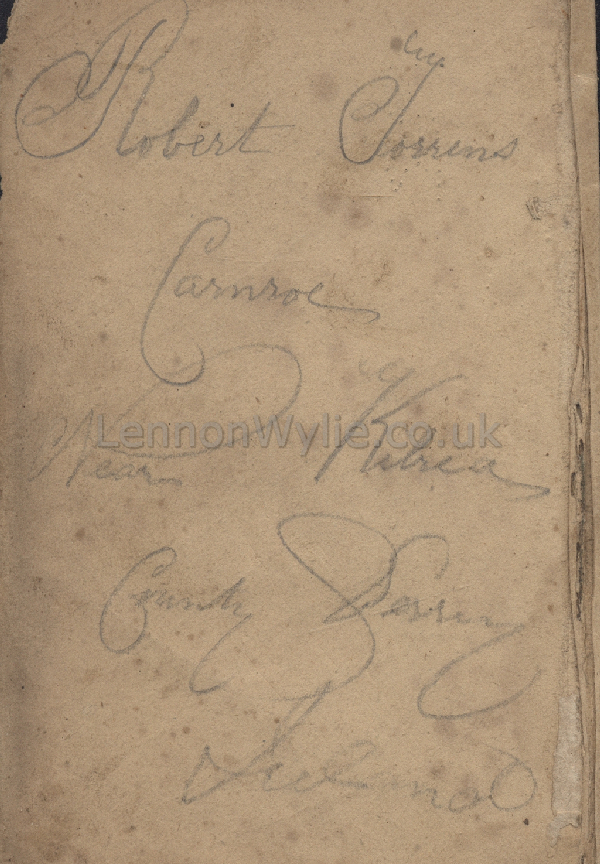 Robert Torrens
Carnroe
Near Kilrea
LennonWylie.co.uk
County Derry
Ireland